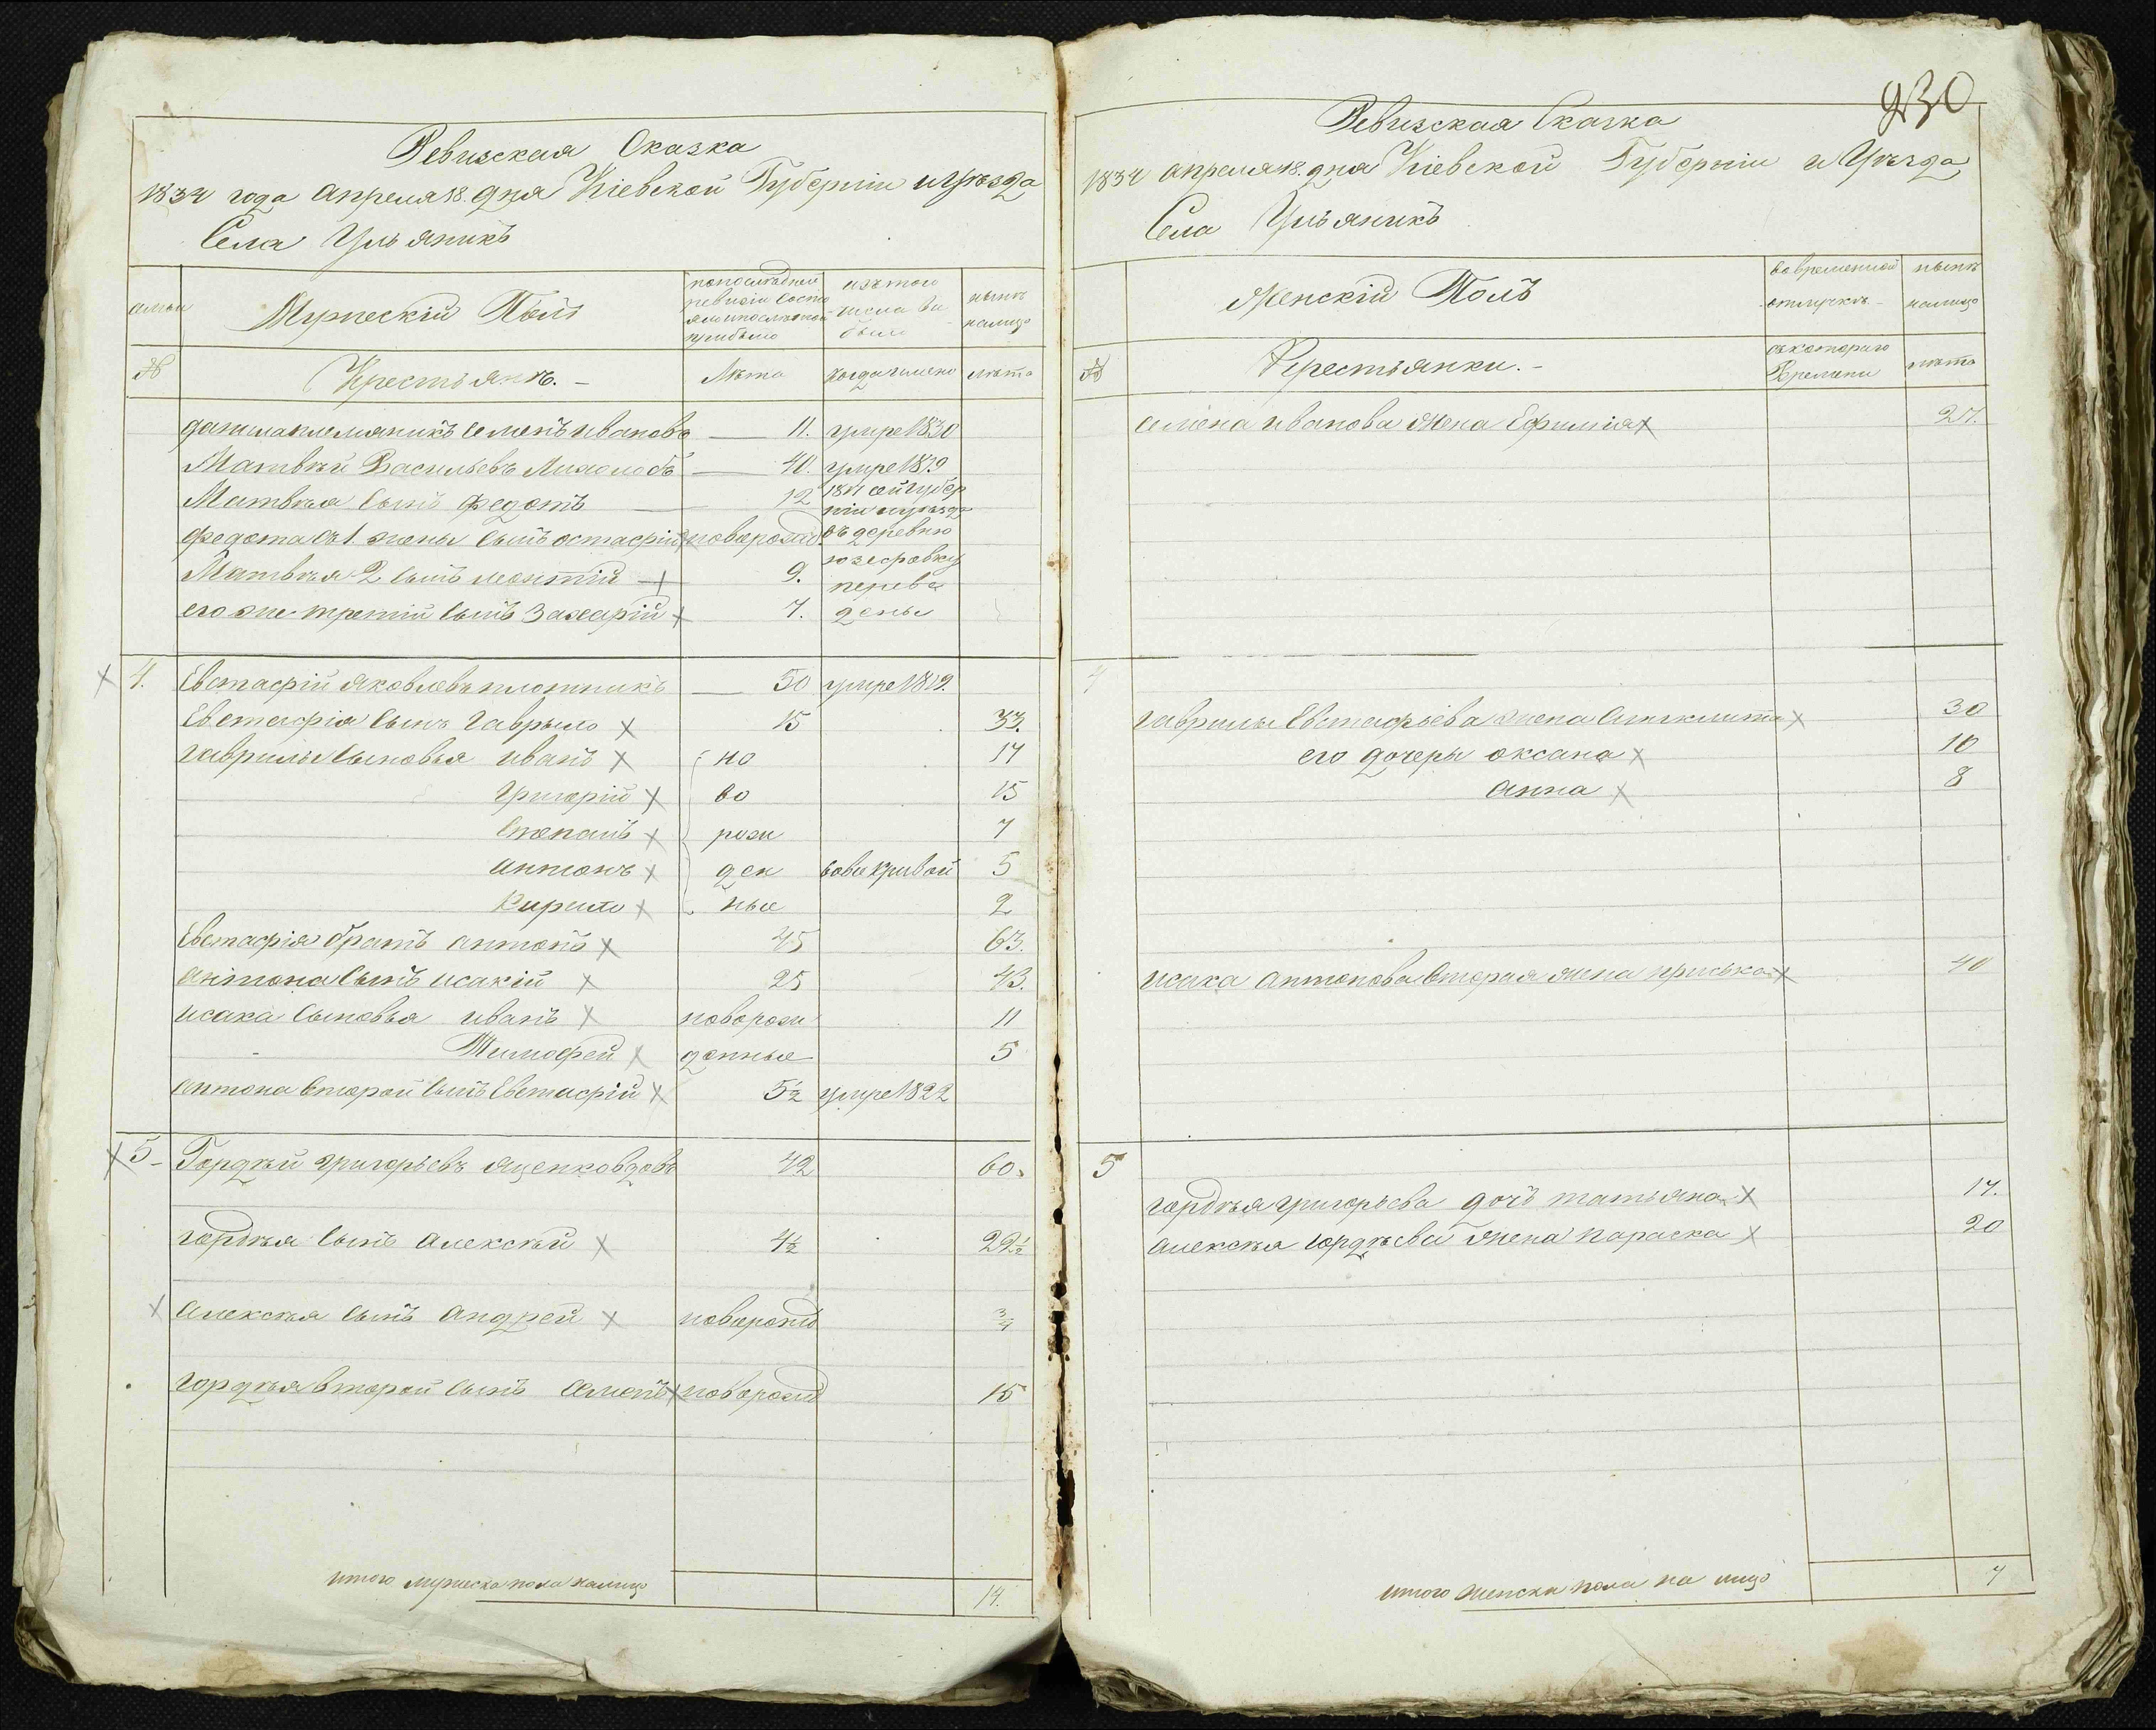 Ревизская Сказка
1834 года апреля 18. дня Кіевской Губерніи и Уѣзда
Села Ульяникъ
Мужескій Полъ
по последней ревизіи состояло и после оной прибыло
изъ того числа выбыло
нынѣ налицо
№
Крестьянѣ. –
Лѣта
когда именно
лѣта
племяникъ Семенъ Ивановъ — 11. умре 1830
Матвѣй Васильевъ — 40. умре 1819
Матвѣя Сынъ Федотъ — 12
Федота отъ 1. жены Сынъ Остафій новорожд
Матвѣя 2 Сынъ Леонтій 9.
его же третій Сынъ Захарій 7.
сей губерніи и уѣзда въ деревню Юзефовку переведены
4. Евстафій Яковлевъ Плотникъ — 50 умре 1819.
Евстафія Сынъ Гаврыло 15 33.
Гаврилы Сыновья Иванъ но 17
Григорій во 15
Степанъ рож 7
Антонъ ден 5
Кирило ные 2
Евстафія братъ Антонъ 45 63.
Антона Сынъ Исакій 25 43.
Исака Сыновья Иванъ новорож 11
Тимофей денные 5
Антона второй Сынъ Евстафій 5½ умре 1822
5 Гордѣй Григорьевъ Яценко вдовъ 42 60.
Гордѣя Сынъ Алексѣй 4½ 22½
Алексѣя Сынъ Андрей новорожд ¾
Гордѣя второй Сынъ Семенъ новорожд 15
итого мужеска пола налицо 14.
930
Ревизская Сказка
1834 апреля 18. дня Кіевской Губерніи и Уѣзда
Села Ульяникъ
Женскій Полъ
во временной отлучкѣ
нынѣ налицо
№
Крестьянки. –
съ котораго времени
лѣта
Семена Иванова жена Ефимія 27.
4
Гаврилы Евстафьева жена 30
его дочеры Оксана 10
Анна 8
Исака Антонова вторая жена Приська 40
5
Гордѣя Григорьева дочь Татьяна 17.
Алексѣя Гордѣева жена Параска 20
итого женска пола на лицо 7